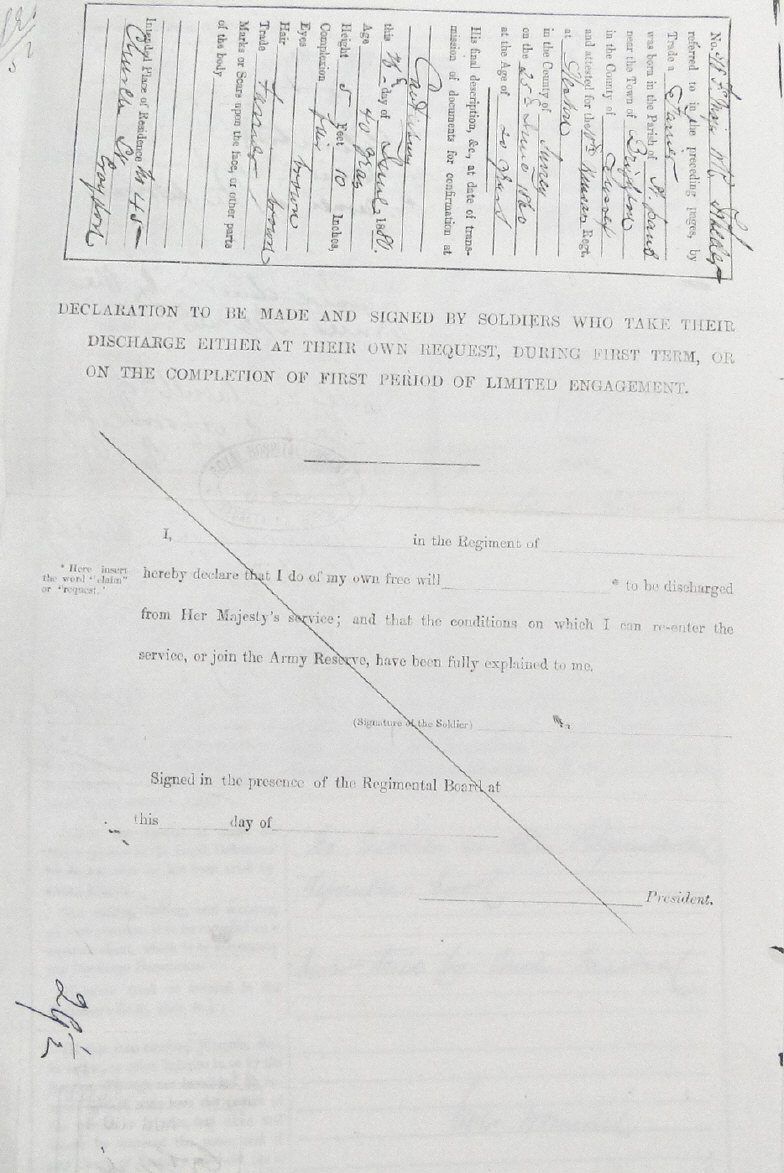 referred to in the preceding pages, by
Trade a Farrier
was born in the Parish of St.
near the Town of Brighton
in the County of Sussex
and attested for the Hussars Regt.
at
in the County of Surrey
on the 25th June 1860
at the Age of 20 years
His final description, &c., at date of trans-
mission of documents for confirmation at
Canterbury
this day of June 1880.
Age 40 years
Height 5 Feet 10 Inches,
Complexion fair
Eyes brown
Hair brown
Trade Farrier
Marks or Scars upon the face, or other parts
of the body
Intended Place of Residence No 45
Church St.
Gosport
DECLARATION TO BE MADE AND SIGNED BY SOLDIERS WHO TAKE THEIR
DISCHARGE EITHER AT THEIR OWN REQUEST, DURING FIRST TERM, OR
ON THE COMPLETION OF FIRST PERIOD OF LIMITED ENGAGEMENT.
I, in the Regiment of
* Here insert
the word "claim"
or "request."
hereby declare that I do of my own free will * to be discharged
from Her Majesty's service; and that the conditions on which I can re-enter the
service, or join the Army Reserve, have been fully explained to me.
(Signature of the Soldier)
Signed in the presence of the Regimental Board at
this day of
President.